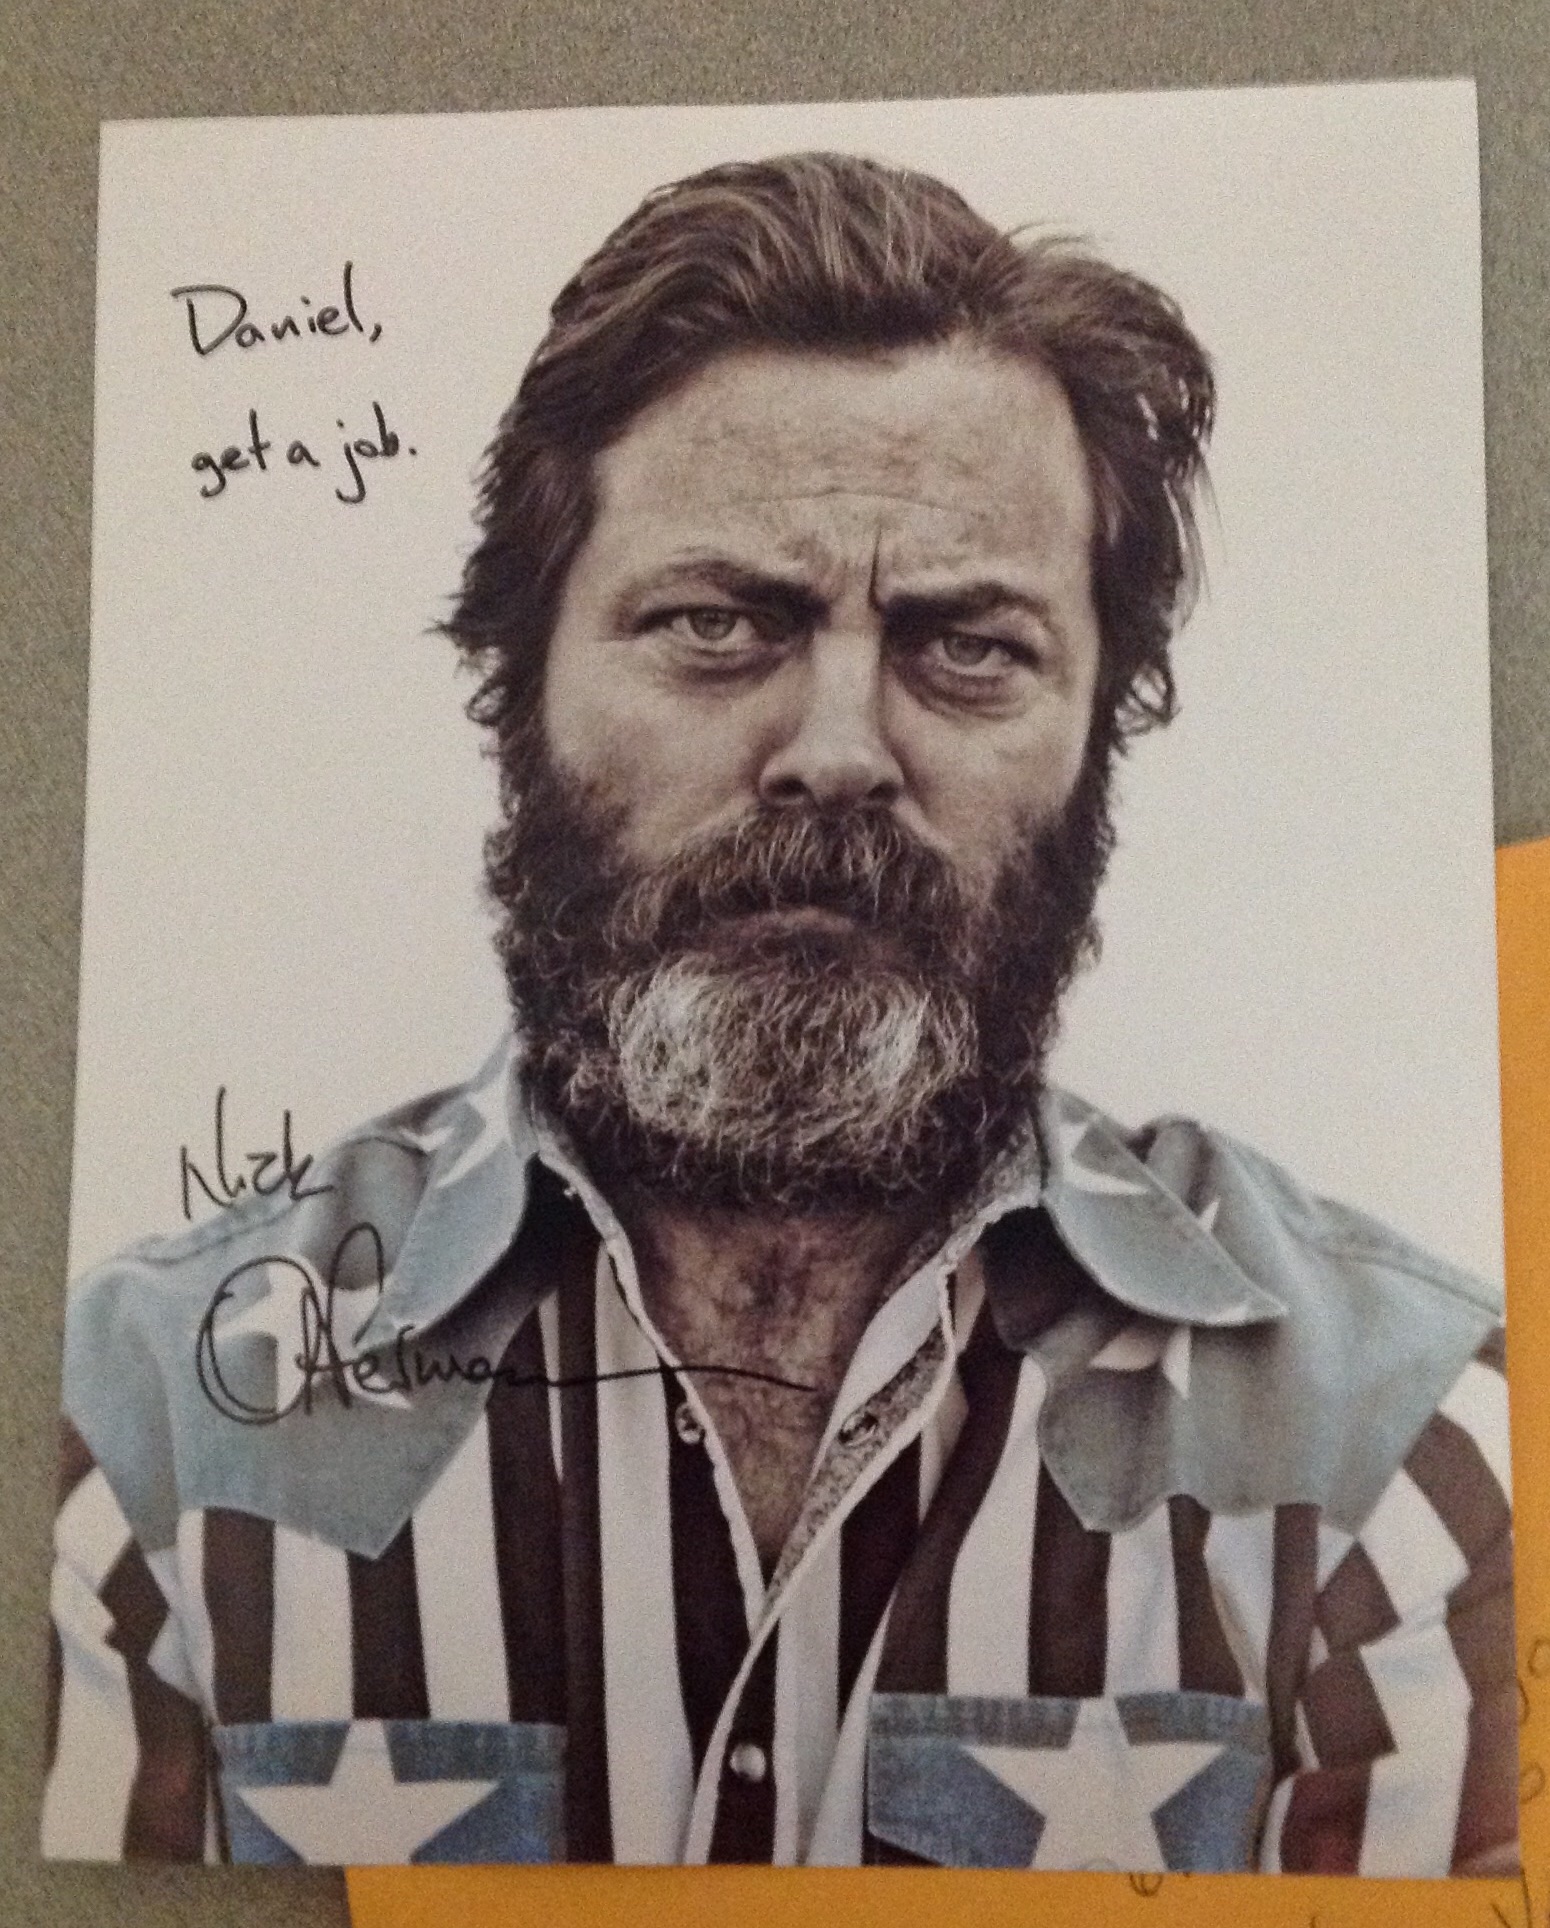 Daniel,
get a job.
Nick
Offerman